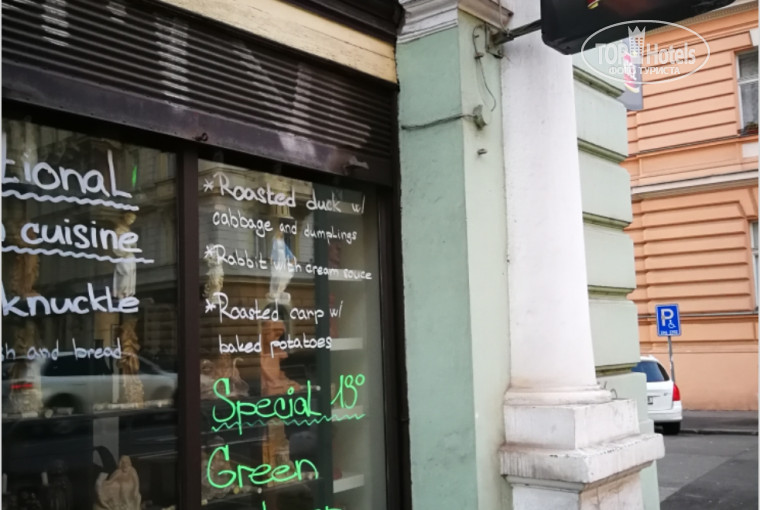 TopHotels
ФОТО ТУРИСТА
tional
cuisine
knuckle
and bread
*Roasted duck w/
cabbage and dumplings
*Rabbit with cream sauce
*Roasted carp w/
baked potatoes
Special 13°
Green
P